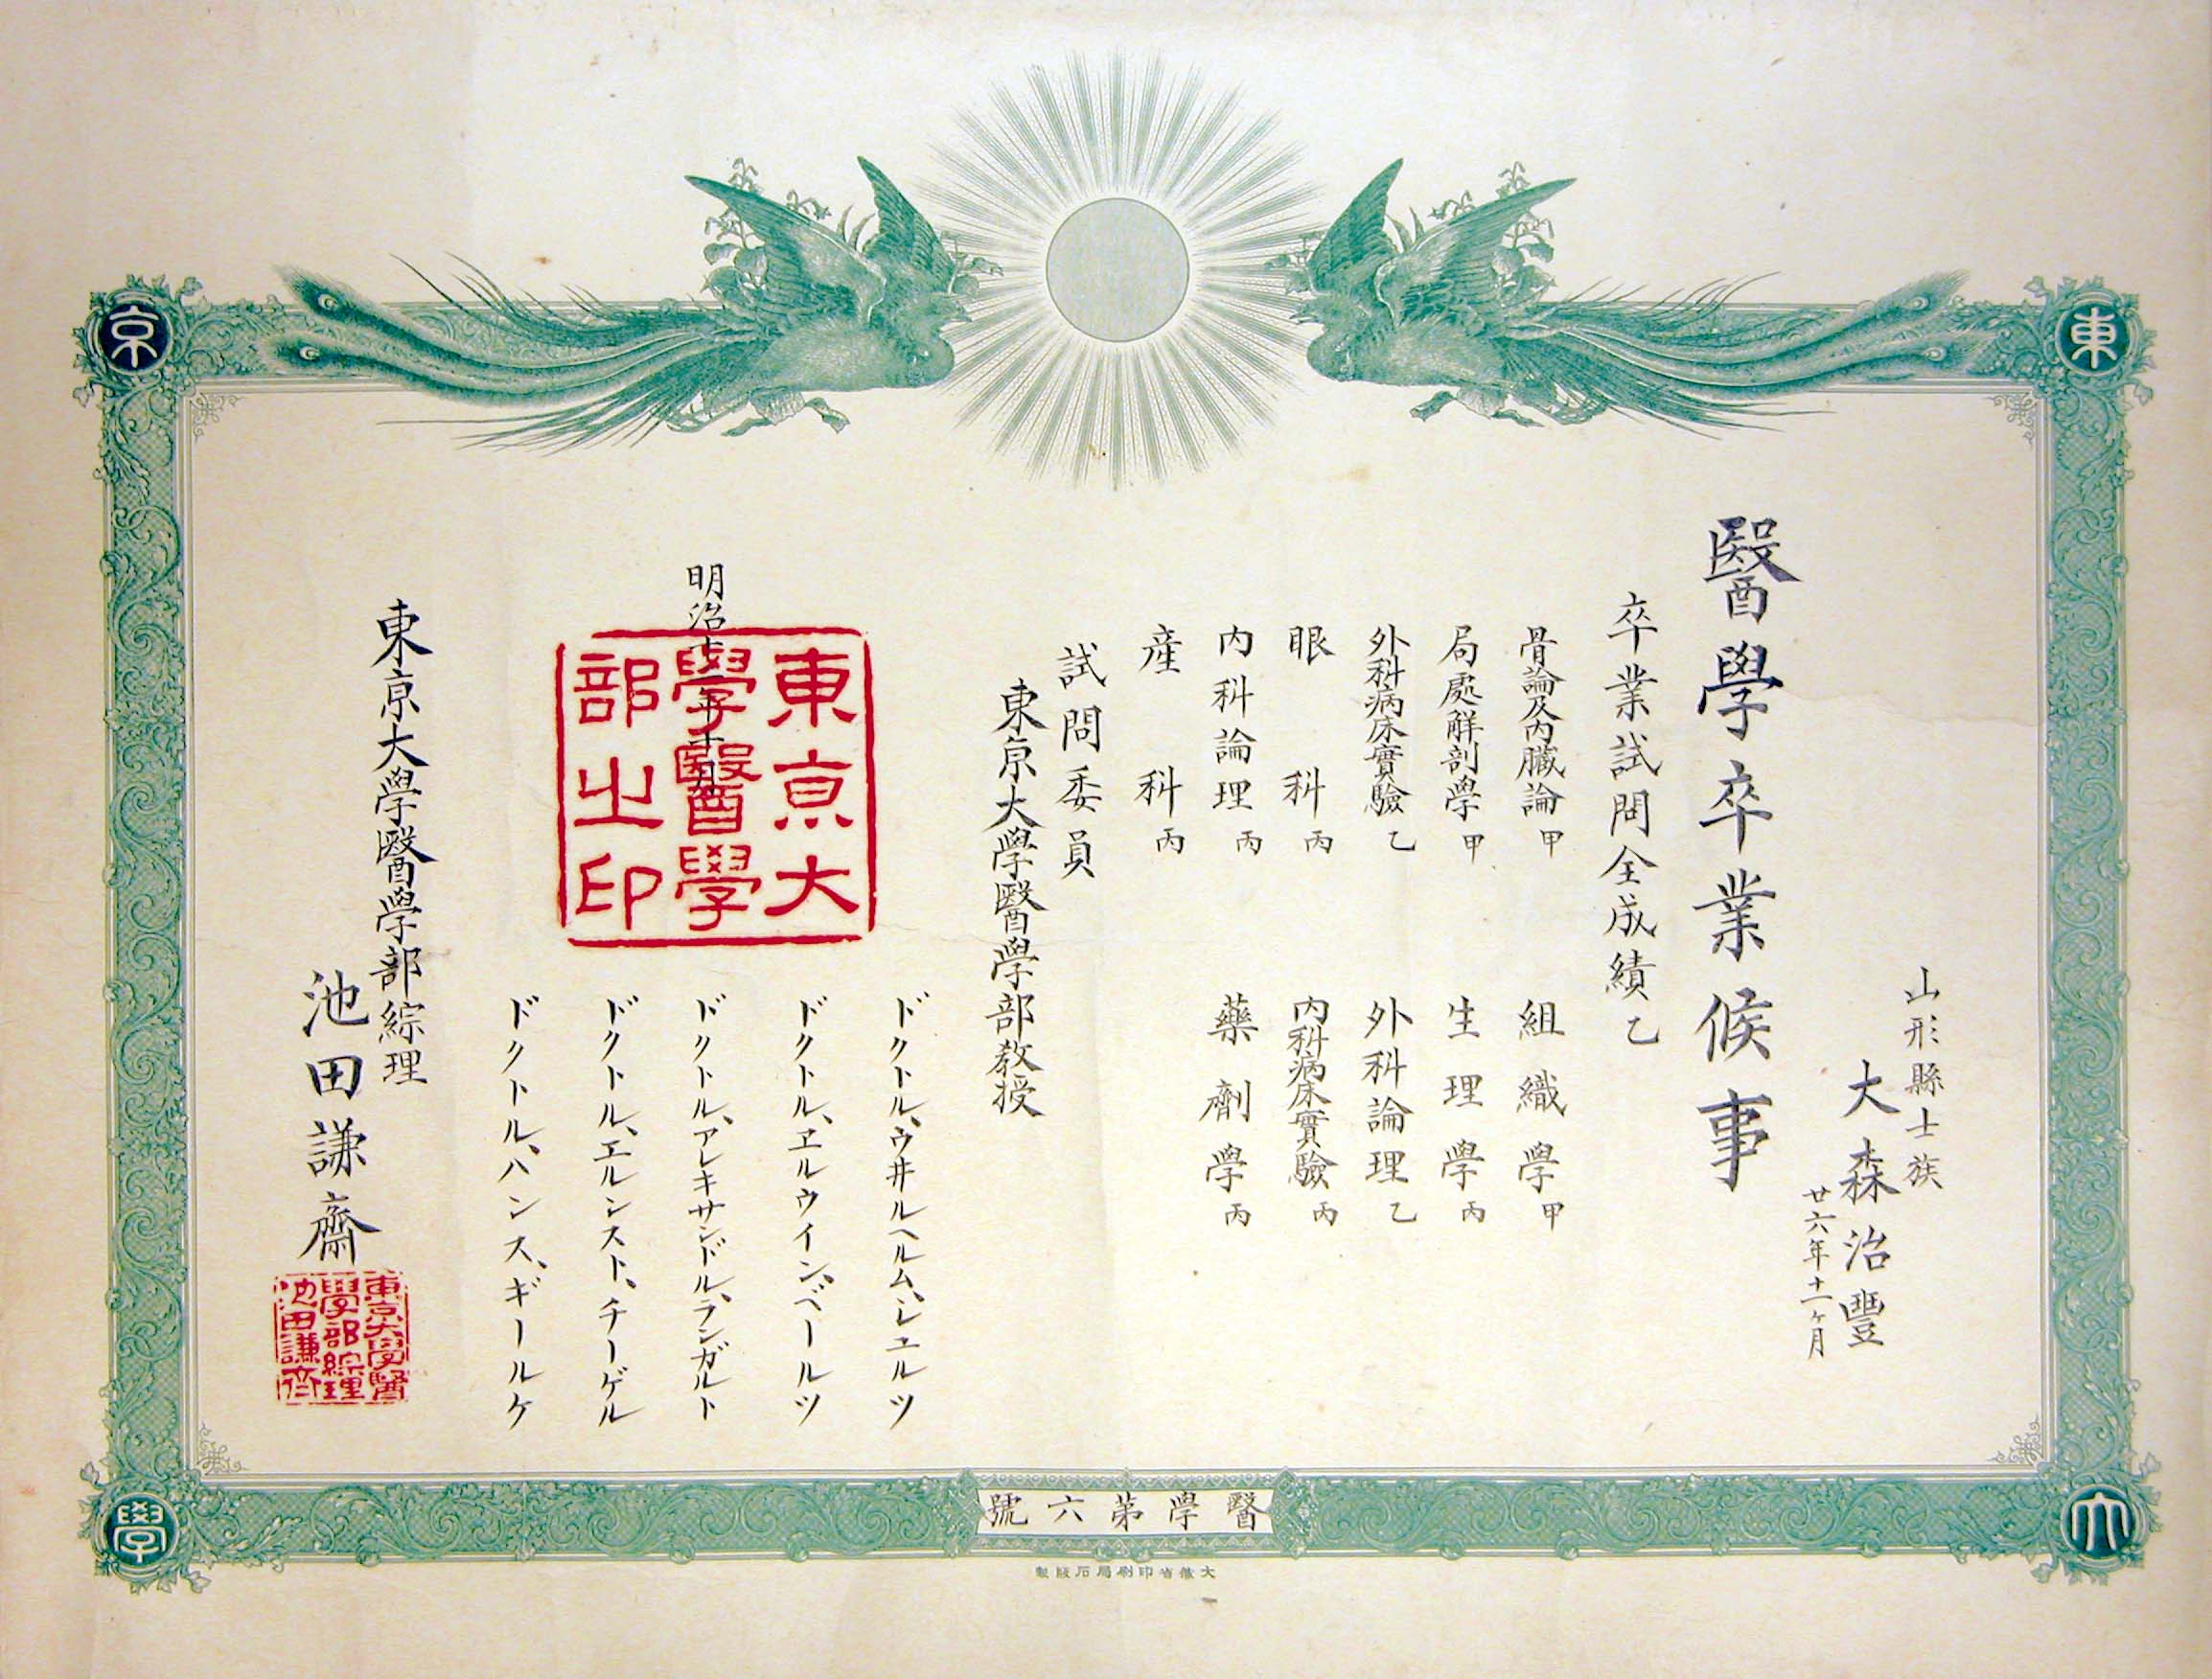 山形縣士族
大森治豐
廿六年十一ヶ月
醫學卒業候事
卒業試問全成績乙
骨論及內臟論甲
組織學甲
局處解剖學甲
生理學丙
外科病床實驗乙
外科論理乙
眼科丙
內科病床實驗丙
內科論理丙
藥劑學丙
產科丙
試問委員
東京大學醫學部教授
ドクトル、ウ井ルヘルム、シュルツ
ドクトル、ヱルウイン、ベールツ
ドクトル、アレキサンドル、ランガルト
ドクトル、エルンスト、チーゲル
ドクトル、ハンス、ギールケ
明治十二年十月
東京大學醫學部之印
東京大學醫學部綜理
池田謙齋
東京大學醫學部綜理池田謙齋
東
京
大
學
醫學第六號
大藏省印刷局石版製